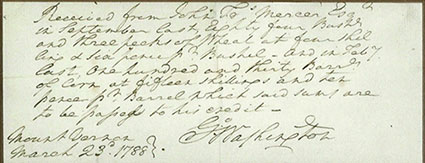 Received from John Fs. Mercer Esqr.
in September last, Eighty four Bushels
and three pecks of Wheat at four shil
lings & six pence pr. Bushel – and in Feby.
last, One hundred and thirty Barrls.
of Corn at fifteen shillings and ten
pence pr. Barrel which said sums are
to be passed to his credit –
Go: Washington
Mount Vernon
March 23d. 1788